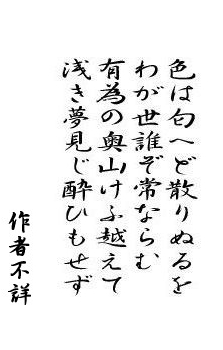 色は匂へど散りぬるを
わが世誰ぞ常ならむ
有為の奥山けふ越えて
浅き夢見じ酔ひもせず
作者不詳